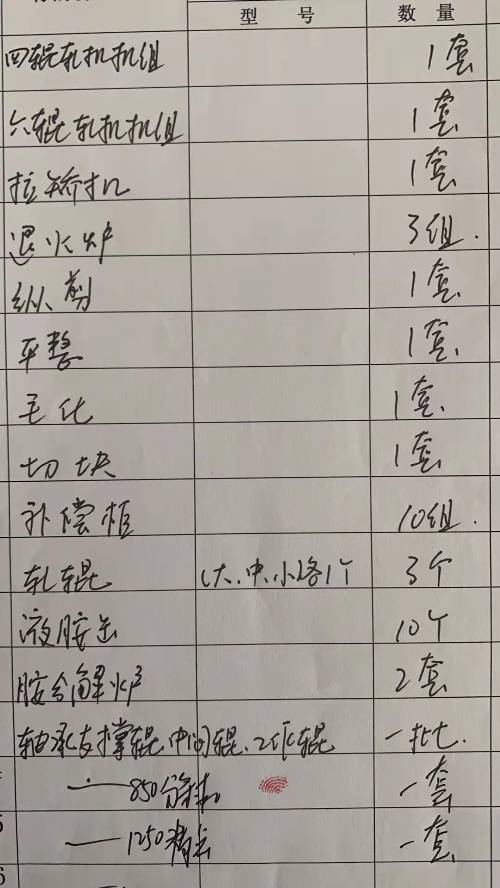 型 号 数 量
四辊轧机机组 1套
六辊轧机机组 1套
拉矫机 1套
退火炉 3组.
纵剪 1套
平整 1套
毛化 1套
切块 1套
补偿柜 10组.
轧辊 (大.中.小各1个 3个
液胺 10个
胺分解炉 2套
轴承支撑辊.中间辊.工作辊 一批.
850分 一套
1250 一套